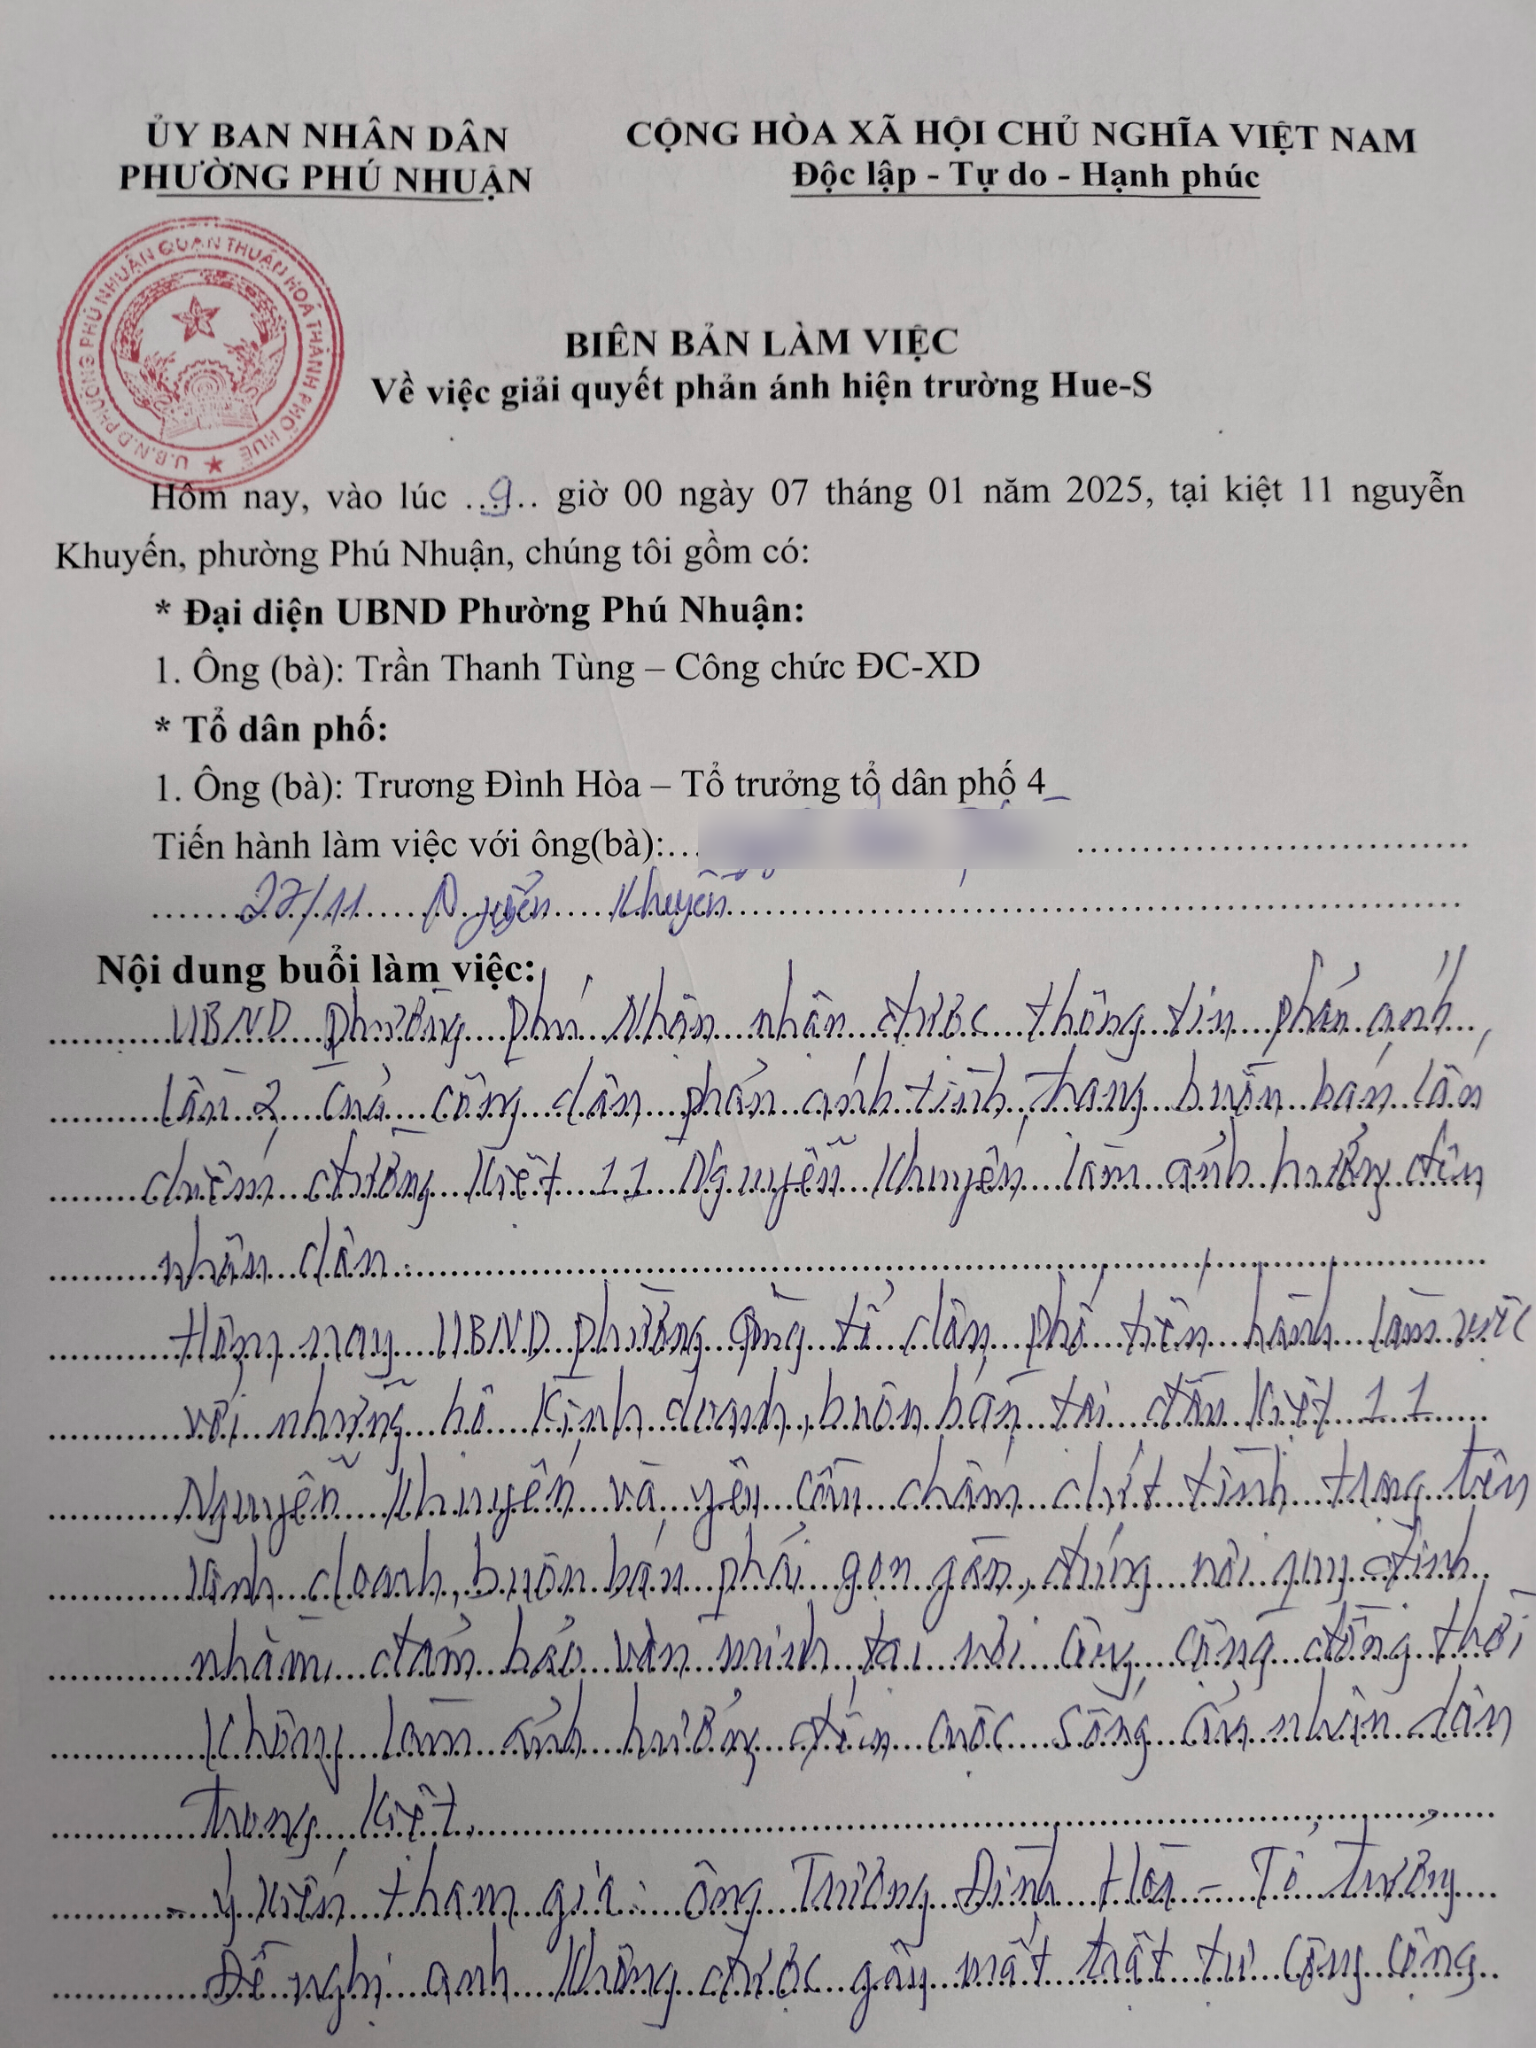 ỦY BAN NHÂN DÂN
PHƯỜNG PHÚ NHUẬN
CỘNG HÒA XÃ HỘI CHỦ NGHĨA VIỆT NAM
Độc lập - Tự do - Hạnh phúc
U.B.N.D PHƯỜNG PHÚ NHUẬN QUẬN THUẬN HOÁ THÀNH PHỐ HUẾ
BIÊN BẢN LÀM VIỆC
Về việc giải quyết phản ánh hiện trường Hue-S
Hôm nay, vào lúc ..9.. giờ 00 ngày 07 tháng 01 năm 2025, tại kiệt 11 nguyễn
Khuyến, phường Phú Nhuận, chúng tôi gồm có:
* Đại diện UBND Phường Phú Nhuận:
1. Ông (bà): Trần Thanh Tùng – Công chức ĐC-XD
* Tổ dân phố:
1. Ông (bà): Trương Đình Hòa – Tổ trưởng tổ dân phố 4
Tiến hành làm việc với ông(bà):
27/11 Nguyễn Khuyến
Nội dung buổi làm việc:
UBND phường phú Nhuận nhận được thông tin phản ánh
lần 2 của công dân phản ánh tình trạng buôn bán lấn
chiếm đường Kiệt 11 Nguyễn Khuyến làm ảnh hưởng đến
nhân dân.
Hôm nay UBND phường cùng tổ dân phố tiến hành làm việc
với những hộ kinh doanh, buôn bán tại đầu kiệt 11
Nguyễn Khuyến và yêu cầu chấm dứt tình trạng trên
kinh doanh, buôn bán phải gọn gàn, đúng nơi quy định
nhằm đảm bảo văn minh tại nơi công cộng đồng thời
không làm ảnh hưởng đến cuộc sống của nhân dân
trong Kiệt.
- ý kiến tham gia: ông Trương Đình Hòa - Tổ trưởng
Đề nghị anh không được gây mất trật tự công cộng